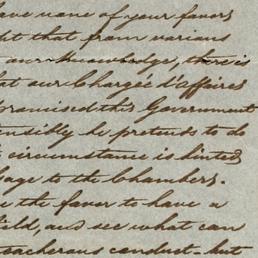 have none of your favors
ght that from various
our knowledge, there is
at our Chargée d'Affaires
promised this Government
ensibly he pretends to do
circumstance is hinted
age to the Chambers.
e the favor to have a
ield, and see what can
eacherous conduct - but